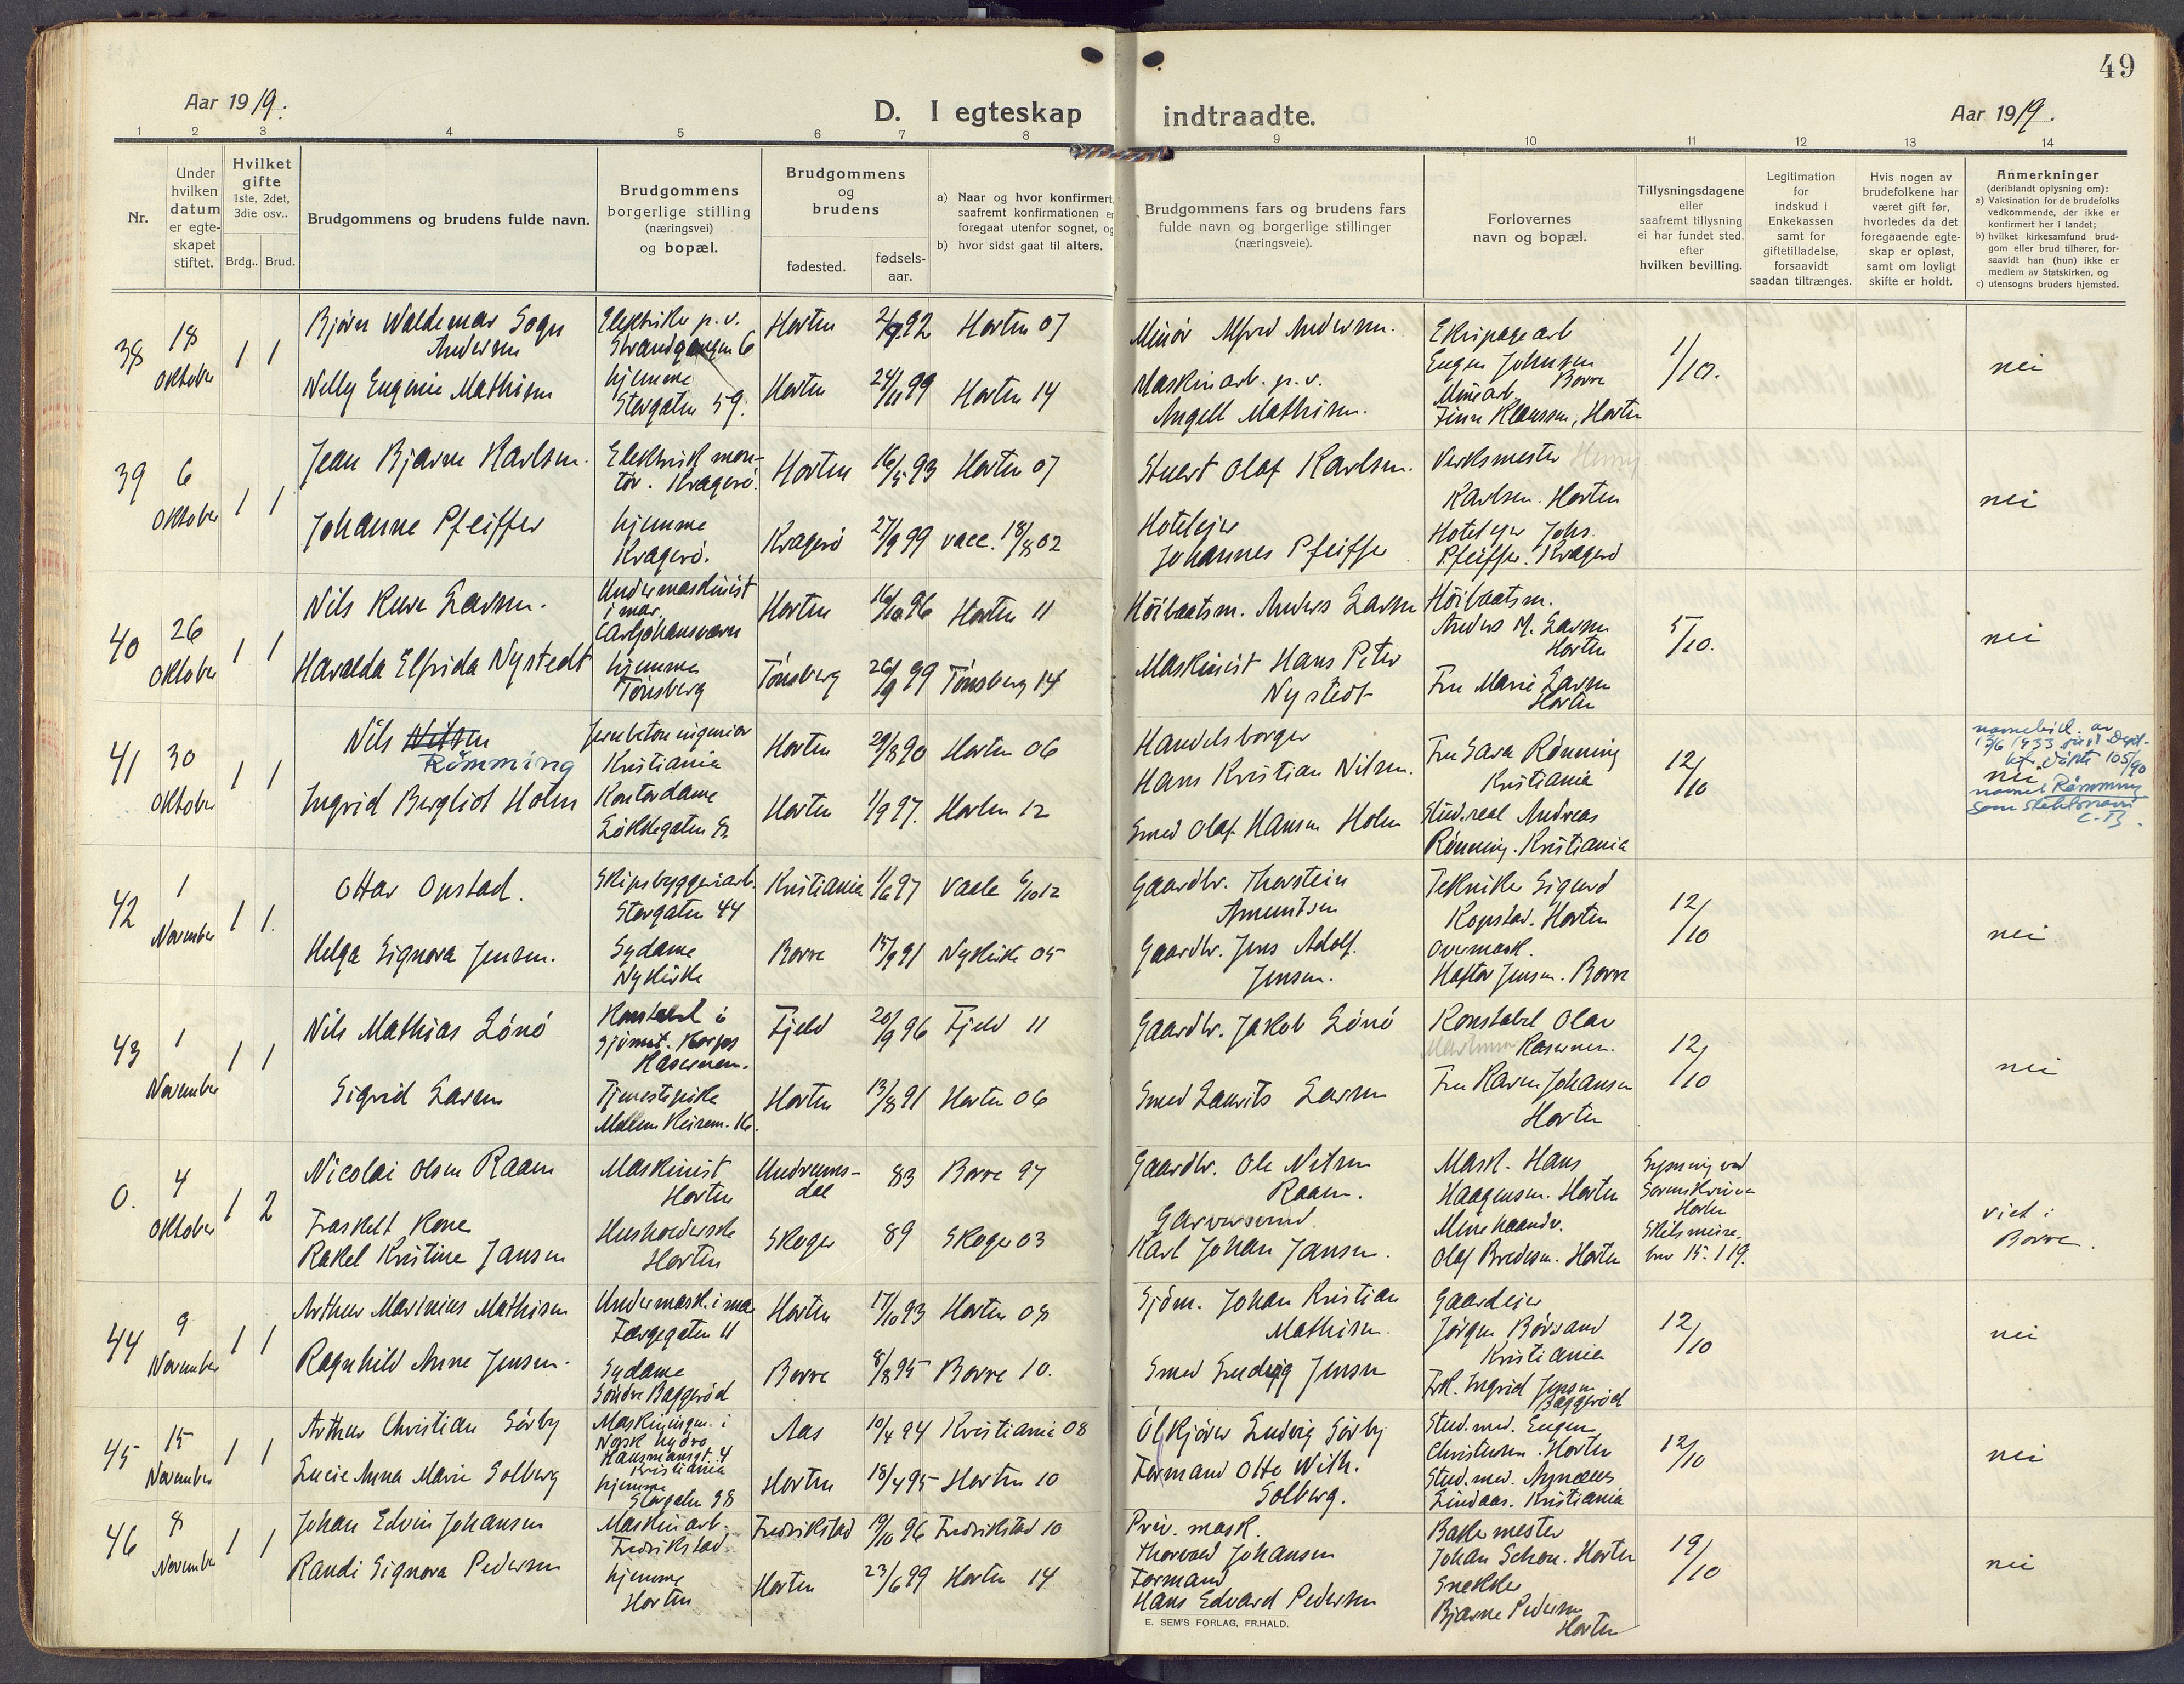 49
Aar 1919.
D. I egteskap indtraadte.
Aar 1919.
1 2 3 4 5 6 7 8 9 10 11 12 13 14
Nr.
Under hvilken datum er egte-skapet stiftet.
Hvilket gifte 1ste, 2det, 3die osv..
Brdg.. Brud.
Brudgommens og brudens fulde navn.
Brudgommens borgerlige stilling (næringsvei) og bopæl.
Brudgommens og brudens
fødested.
fødsels-aar.
a) Naar og hvor konfirmert,
saafremt konfirmationen er
foregaat utenfor sognet, og
b) hvor sidst gaat til alters.
Brudgommens fars og brudens fars
fulde navn og borgerlige stillinger
(næringsveie).
Forlovernes
navn og bopæl.
Tillysningsdagene
eller
saafremt tillysning
ei har fundet sted,
efter
hvilken bevilling.
Legitimation
for
indskud i
Enkekassen
samt for
giftetilladelse,
forsaavidt
saadan tiltrænges.
Hvis nogen av
brudefolkene har
været gift før,
hvorledes da det
foregaaende egte-
skap er opløst,
samt om lovligt
skifte er holdt.
Anmerkninger
(deriblandt oplysning om):
a) Vaksination for de brudefolks
vedkommende, der ikke er
konfirmert her i landet;
b) hvilket kirkesamfund brud-
gom eller brud tilhører, for-
saavidt han (hun) ikke er
medlem av Statskirken, og
c) utensogns bruders hjemsted.
38 18 Oktober 1 1
Bjørn Waldemar Sogn Andersen
Elektriker p. v. Strandgangen 6
Horten 92 Horten 07
Minør Alfred Andersen.
Ekipagearb Eugen Johnsen Borre
1/10. nei
Nelly Eugenie Mathisen
hjemme Storgaten 59.
Horten 24/11 99 Horten 14
Maskinarb. p. v. Angell Mathisen.
Minearb. Finn Klaussen, Horten
39 6 Oktober 1 1
Jean Bjarne Karlsen.
Elektrisk mon-tør. Kragerø.
Horten 16/5 93 Horten 07
Stuert Olaf Karlsen.
Verksmester Henry Karlsen. Horten
nei
Johanne Pfeiffer
hjemme Kragerø.
Kragerø 27/9 99 vacc. 18/8 02
Hoteleier Johannes Pfeiffer
Hoteleier Johs. Pfeiffer. Kragerø
40 26 Oktober 1 1
Nils Larsen.
Undermaskinist i mar. Carljohansværn
Horten 16/10 96 Horten 11
Høibaatsm. Anders Larsen
Høibaatsm. Anders M. Larsen Horten
5/10. nei
Haralda Elfrida Nystedt
hjemme Tønsberg
Tønsberg 26/9 99 Tønsberg 14
Maskinist Hans Peter Nystedt
Fru Marie Larsen Horten
41 30 Oktober 1 1
Nils Nilsen Rønning
Jernbetoningeniør Kristiania
Horten 29/8 90 Horten 06
Handelsborger Hans Kristian Nilsen.
Fru Sara Rønning Kristiania
12/10
navnebevill. av
13/6 1933
105/90
nei
navnet Rønning
som slektsnavn
C. B.
Ingrid Bergliot Holm
Kontordame Løkkegaten
Horten 1/9 97. Horten 12
Smed Olaf Hansen Holm
Stud. real Andreas Rønning. Kristiania
42 1 November 1 1.
Ottar Opstad.
Skipsbyggeriarb. Storgaten 44
Kristiania 1/6 97 Vaale 6/10 12
Gaardbr. Thorstein Amundsen
Tekniker Sigurd Kopstad. Horten
12/10 nei
Helga Signora Jensen.
Sydame Nykirke
Borre 15/9 91 Nykirke 05
Gaardbr. Jens Adolf. Jensen.
Overmask. Haftor Jensen. Borre
43 1 November 1 1
Nils Mathias Lønø
Konstabel i Sjømil. Korps Kasernen.
Fjeld 20/9 96 Fjeld 11
Gaardbr. Jakob Lønø
Konstabel Olav Kasernen.
12/10 nei
Sigrid Larsen
Tjenestepike Mellem Keisem. 16.
Horten 13/8 91 Horten 06
Smed Laurits Larsen
Fru Karen Johansen Horten
0. 4 Oktober 1 2
Nicolai Olsen Raaen
Maskinist Horten
Undrums-dal 83 Borre 97
Gaardbr. Ole Nilsen Raaen.
Mask. Hans Haagensen. Horten
Lysning ved Sorenskriver Horten
viet i Borre.
Fraskilt Kone Rakel Kristine Jansen
Husholderske Horten
Skoger 89 Skoger 03
Garversvend Karl Johan Jansen.
Minehaandv. Olaf Bredesen. Horten
Skilsmisse. bev 15. 1 19.
44 9 November 1 1
Arthur Marinius Mathisen
Undermask. i mar Færgegaten 11
Horten 17/10 93 Horten 08
Sjøm. Johan Kristian Mathisen.
Gaardeier Jørgen Børsand Kristiania
12/10 nei
Ragnhild Anne Jensen.
Sydame Søndre Baggerød
Borre 8/8 95 Borre 10.
Smed Ludvig Jensen
Frk. Ingrid Jensen Baggerød
45 15 November 1 1
Arthur Christian Sørby
Maskiningen. i Norsk hydro Hausmansgt. 4 Kristiania
Aas 10/4 94 Kristiania 08
Ølkjører Ludvig Sørby
Stud. med. Eugen Christensen. Horten
12/10 nei
Lucie Anna Marie Solberg
hjemme Storgaten 98
Horten 18/4 95 Horten 10
Formand Otto Wilh. Solberg.
Stud. med. Lindaas. Kristiania
46 8 November 1 1
Johan Edvin Johansen
Maskinarb. Fredrikstad.
Fredrikstad 19/10 96 Fredrikstad 10
Priv. mask. Thorvald Johansen
Bakermester Johan Schou. Horten
19/10 nei
Randi Signora Pedersen
hjemme Horten
Horten 23/6 99 Horten 14
Formand Hans Edvard Pedersen
Snekker Bjarne Pedersen Horten
E. SEM'S FORLAG, FR.HALD.